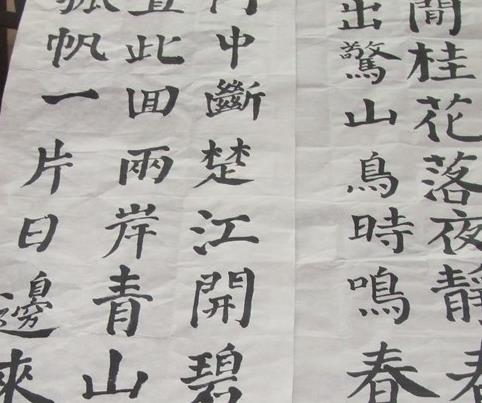 閒桂花落夜靜春
出驚山鳥時鳴春
門中斷楚江開碧
直此囬兩岸青山
孤帆一片日邊來